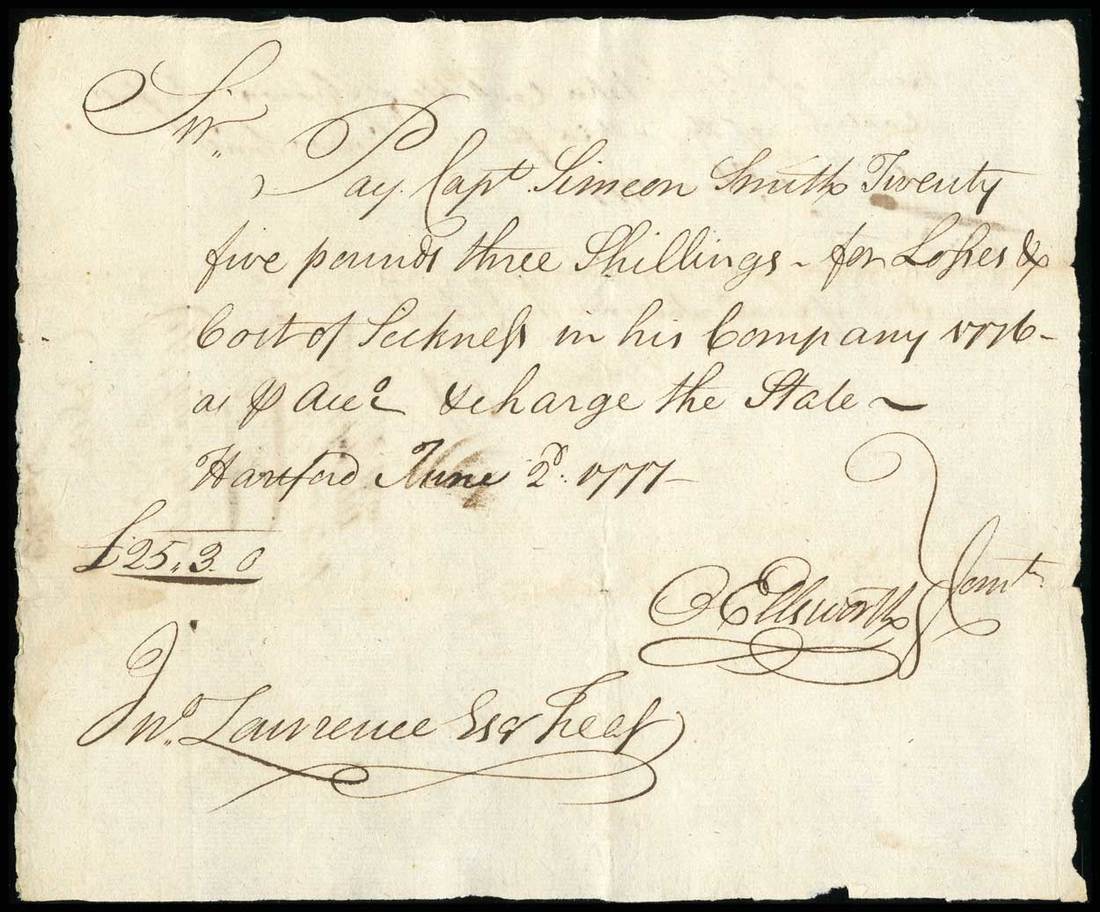 Sir,
Pay Capt Simeon Smith Twenty
five pounds three Shillings - for Losses &
Cost of Sickness in his Company 1776 -
as ⅌ Accº & charge the State ~
Hartford June 2d. 1777 -
£25,, 3. 0
O Ellsworth } Comte
Jnº. Lawrence Esqr Treasr